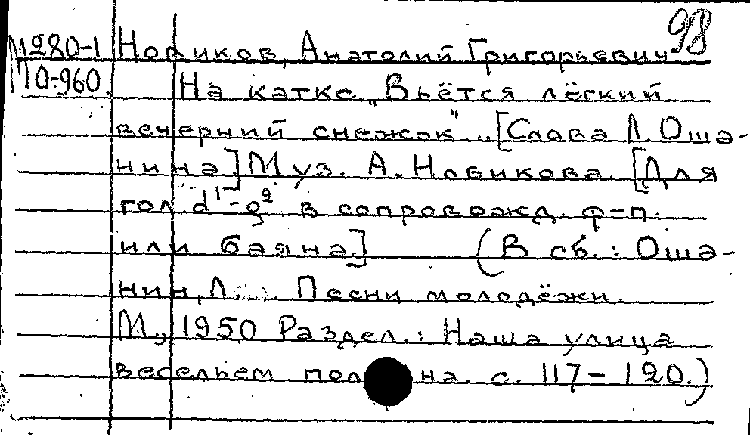 98
М280-1 Новиков, Анатолий Григорьевич
МО-960 На катке „Вьётся лёгкий
вечерний снежок"... [Слова Л. Оша-
нина] Муз. А. Новикова. [Для
гол. d¹-g² в сопровожд. ф-п.
или баяна.] (В сб.: Оша-
нин, Л. Песни молодёжи.
М., 1950 Раздел.: Наша улица
весельем пол на. с. 117-120.)